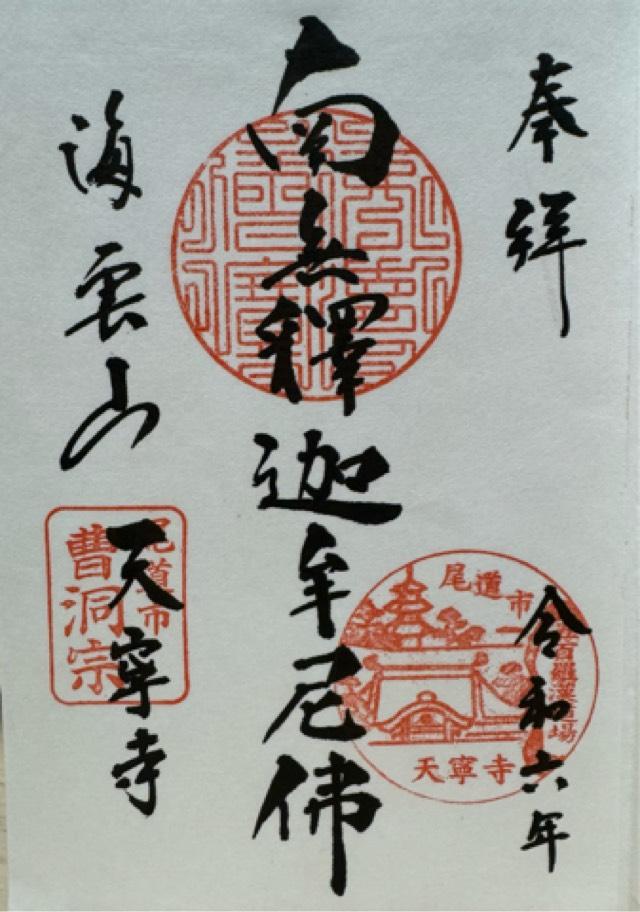 奉拝
令和六年
南無釋迦牟尼佛
海雲山
天寧寺
尾道市
曹洞宗
尾道市
五百羅漢道場
天寧寺